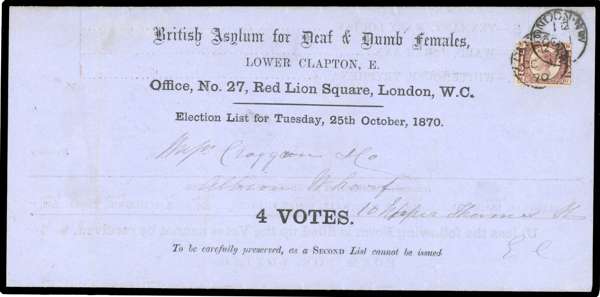 British Asylum for Deaf & Dumb Females,
LOWER CLAPTON, E.
Office, No. 27, Red Lion Square, London, W.C.
Election List for Tuesday, 25th October, 1870.
Messrs Croggon & Co
Albion Wharf
10 Upper Thames St
E C
4 VOTES.
To be carefully preserved, as a SECOND List cannot be issued
LONDON N.W
70